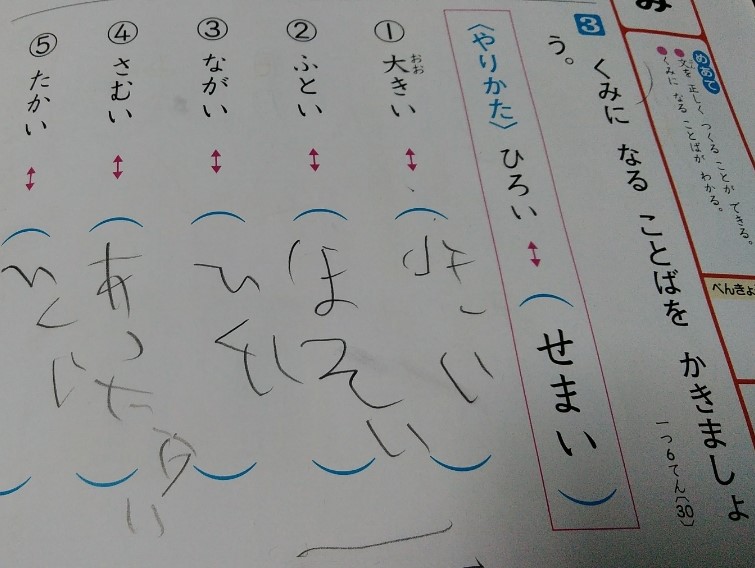 み
めあて
文を 正しく つくる ことが できる。
くみに なる ことばが わかる。
べんきょ
3 くみに なる ことばを かきましょ
う。
一つ6てん(30)
〈やりかた〉 ひろい ↔ (せまい)
① 大きい ↔ (小さい)
おお
② ふとい ↔ (ほそい)
③ ながい ↔ (ひくい)
④ さむい ↔ (あったかい)
⑤ たかい ↔ (ひくい)